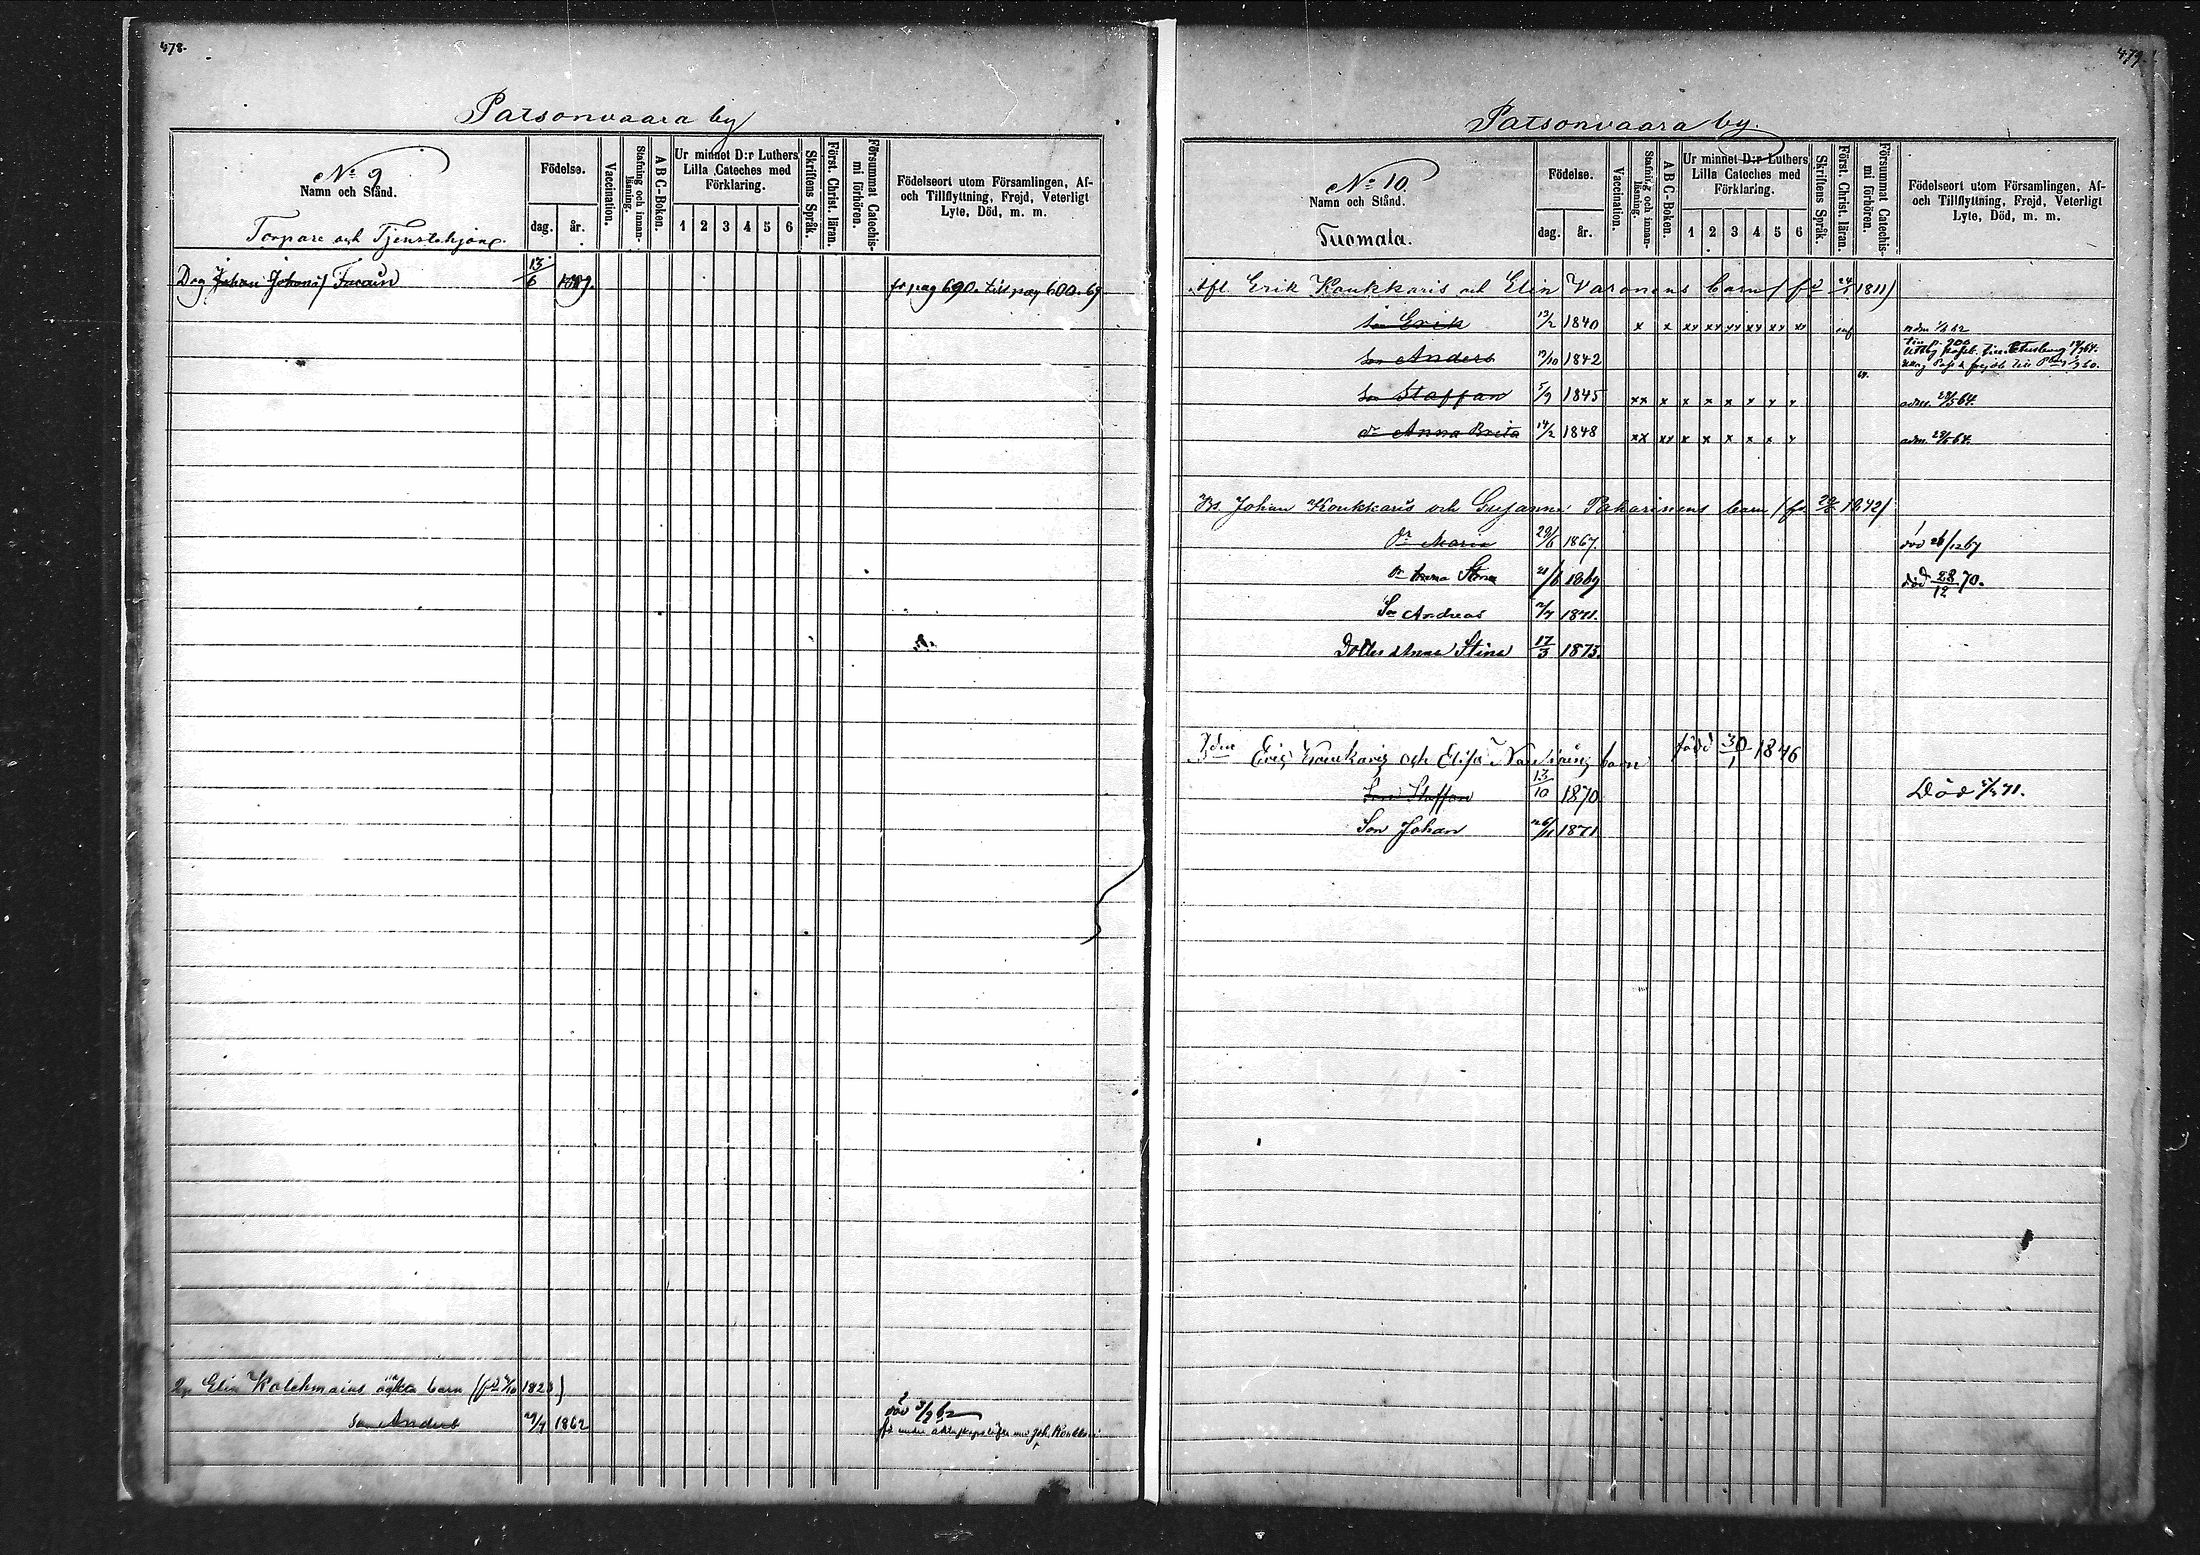 478.
Patsonvaara by
No 9
Namn och Stånd.
Torpare och Tjenstehjon
Födelse.
dag. år.
Vaccination.
Stafning och innan-läsning.
ABC-Boken.
Ur minnet D:r Luthers Lilla Cateches med Förklaring.
1 2 3 4 5 6
Skriftens Språk.
Först. Christ. läran.
Försummat Catechis-mi förhören.
Födelseort utom Församlingen, Af- och Tillflyttning, Frejd, Veterligt Lyte, Död, m. m.
Drg Johan Johans/ 13/6 fr pag 690. till pag 600. 69
Elin Kolehmains barn
Son Anders 29/7 1862 död 3/9 62
Joh. Koukkari
479.
Patsonvaara by.
No 10.
Namn och Stånd.
Tuomala.
Födelse.
dag. år.
Vaccination.
Stafning och innan-läsning.
ABC-Boken.
Ur minnet D:r Luthers Lilla Cateches med Förklaring.
1 2 3 4 5 6
Skriftens Språk.
Först. Christ. läran.
Försummat Catechis-mi förhören.
Födelseort utom Församlingen, Af- och Tillflyttning, Frejd, Veterligt Lyte, Död, m. m.
Erik Koukkaris och Elin Varonens barn (fd 1811)
Son Erik 13/2 1840 x x xx xx xx xx xx xx
Son Anders 13/10 1842
Son Staffan 5/9 1845 xx x x x x x x x adm. 29/5 64.
dr Anna Brita 14/2 1848 xx xx x x x x x x adm. 29/5 64.
Bs Johan Koukkaris och Susanna Pakarinens barn (fd 1842)
dr Maria 29/6 1867. död 26/12 67
dr Anna Stina 21/6 1869 död 28/12 70.
Son Andreas 1871.
Dotter Anna Stina 17/3 1873.
Eric Koukaris och Elisa barn född 30/1 1846
Son Staffan 13/10 1870 Död 71.
Son Johan 26/11 1871